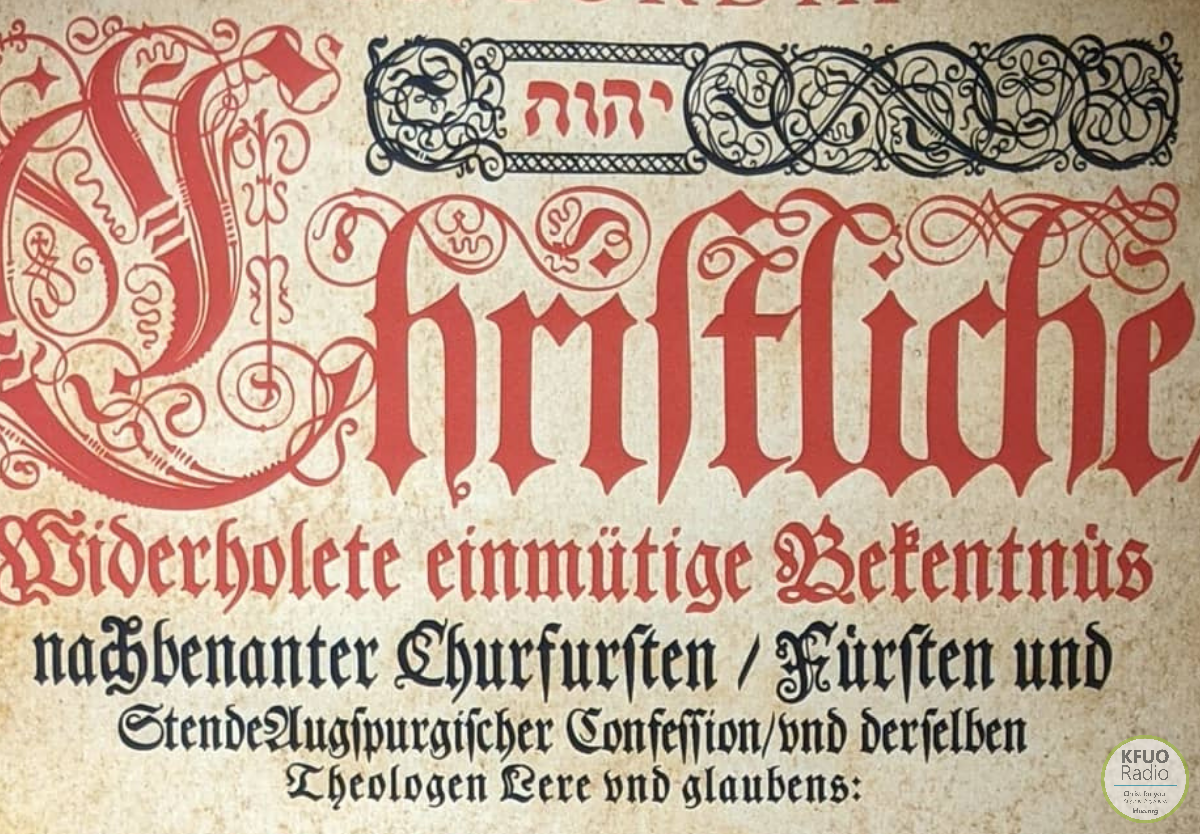 יהוה
Christliche/
Widerholete einmütige Bekentnüs
nachbenanter Churfursten / Fürsten und
Stende Augspurgischer Confession/vnd derselben
Theologen Lere vnd glaubens:
KFUO
Radio
Christ for you
kfuo.org